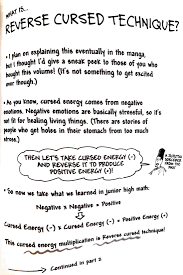 WHAT IS...
REVERSE CURSED TECHNIQUE?
• I plan on explaining this eventually in the manga,
but I thought I'd give a sneak peek to those of you who
bought this volume! (It's not something to get excited
over though.)
• As you know, cursed energy comes from negative
emotions. Negative emotions are basically stressful, so it's
not for healing living things. (There are stories of
people who get holes in their stomach from too much
stress.)
THEN LET'S TAKE CURSED ENERGY (-)
AND REVERSE IT TO PRODUCE
POSITIVE ENERGY (+)!
• So now we take what we learned in junior high math:
Negative x Negative = Positive
Cursed Energy (-) x Cursed Energy (-) = Positive Energy (+)
This cursed energy multiplication is Reverse cursed technique!
Continued in part 2